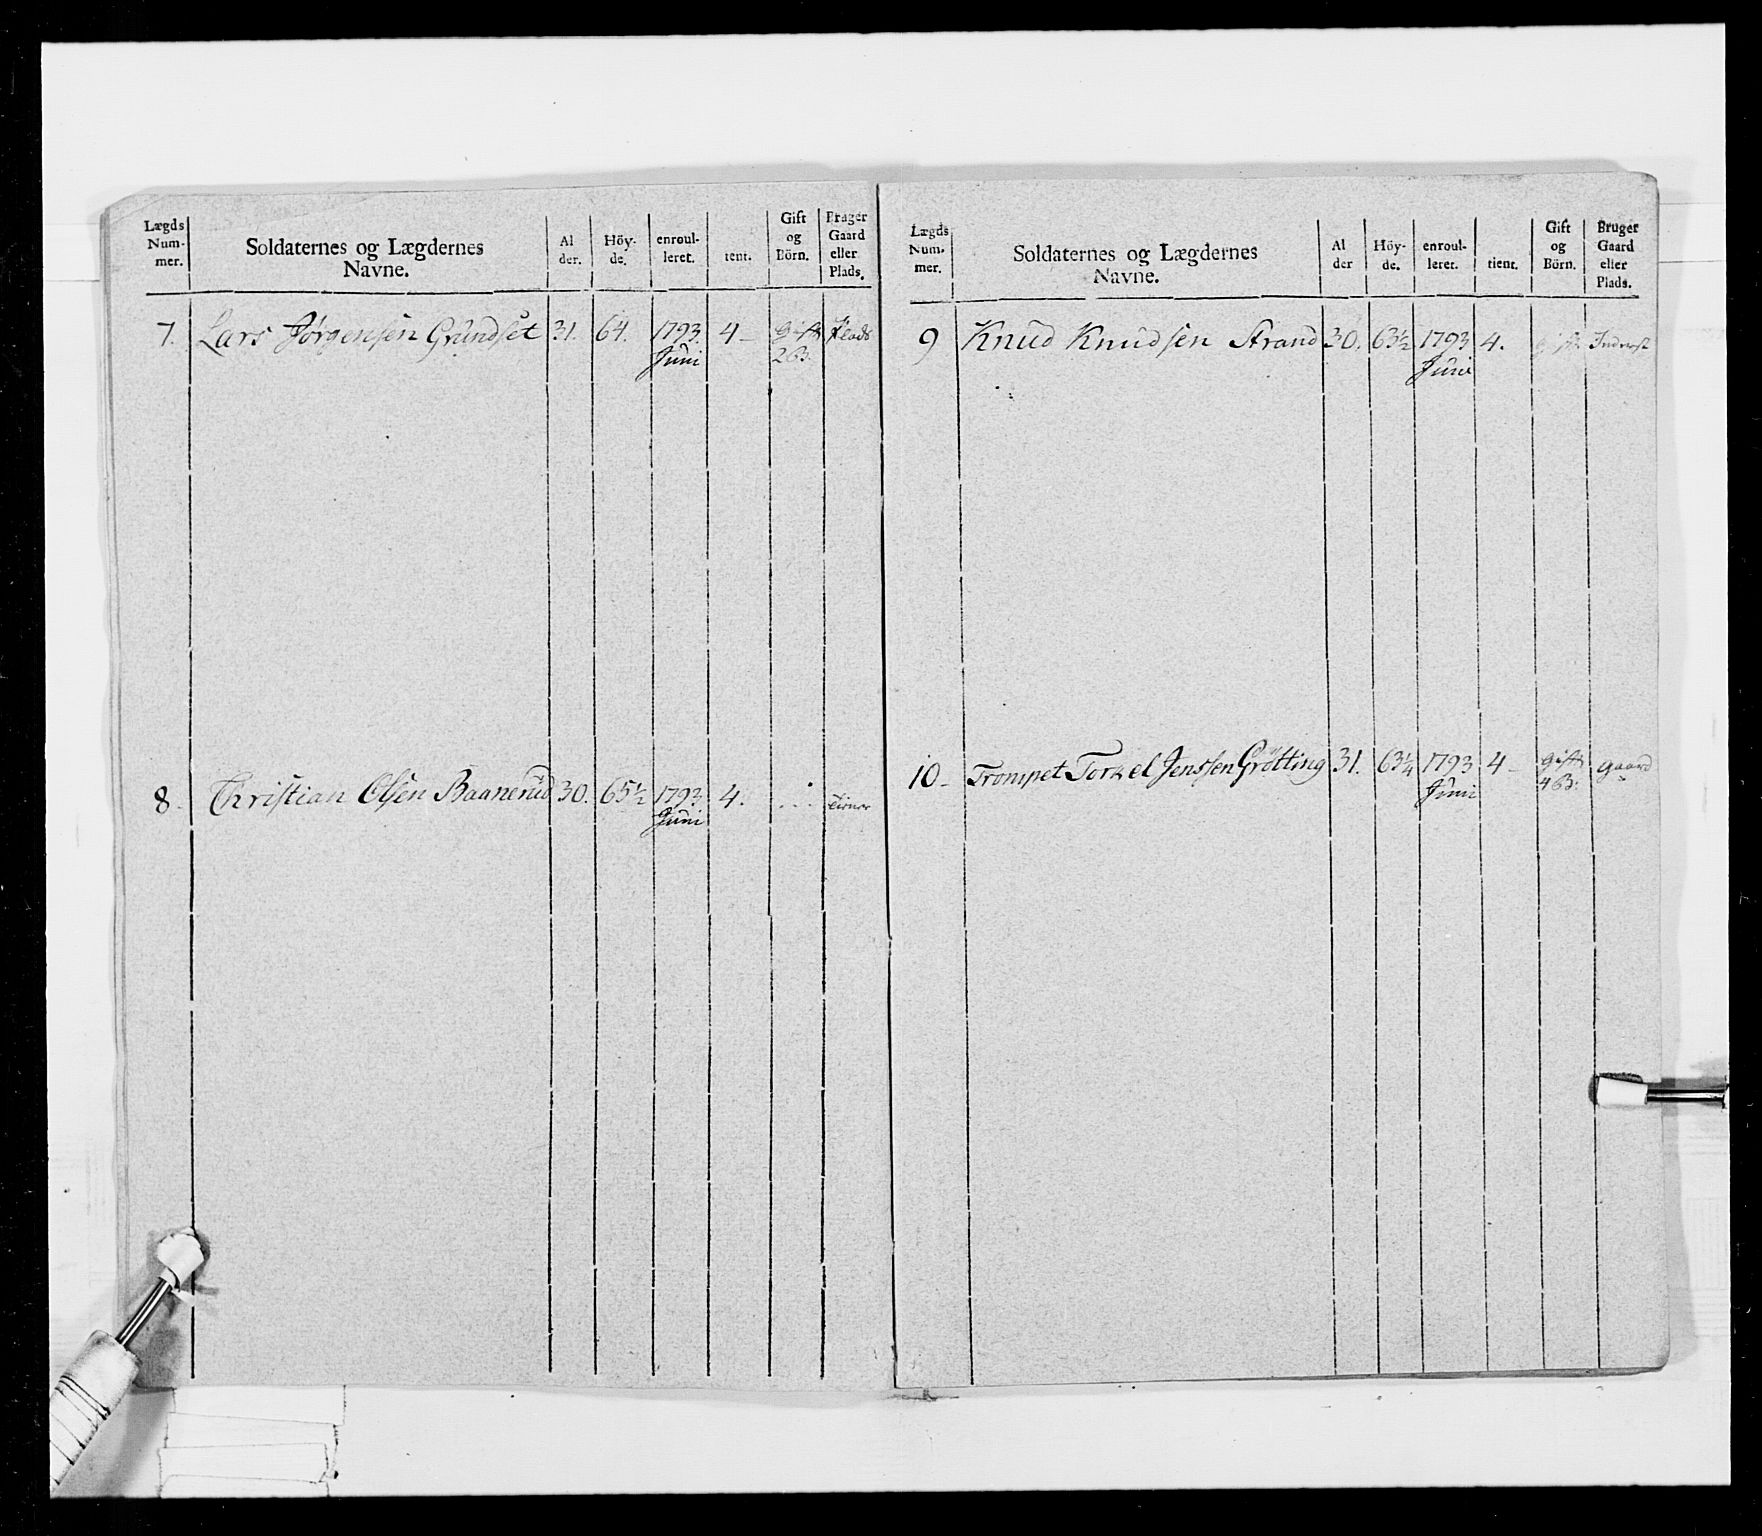 Lægds Num- mer.
Soldaternes og Lægdernes Navne.
Al der.
Höy- de.
enroul- leret.
tient.
Gift og Börn.
Brager Gaard eller Plads.
7. Lars Jørgensen Grundset 31. 64. 1793. 4 – Gift Plads
Juni 2 B.
8. Christian Olsen Baanerud 30. 65½ 1793. 4. . . . Tiener
Juni
Lægds Num- mer.
Soldaternes og Lægdernes Navne.
Al der
Höy- de.
enroul- leret.
tient.
Gift og Börn.
Bruger Gaard eller Plads.
9 Knud Knudsen Strand 30. 63½ 1793 4. Gift Inderst
Juni
10 – Trompet Torkel Jenssen Grötting 31. 63¼ 1793 4 – Gift Gaard
Juni 4 B.